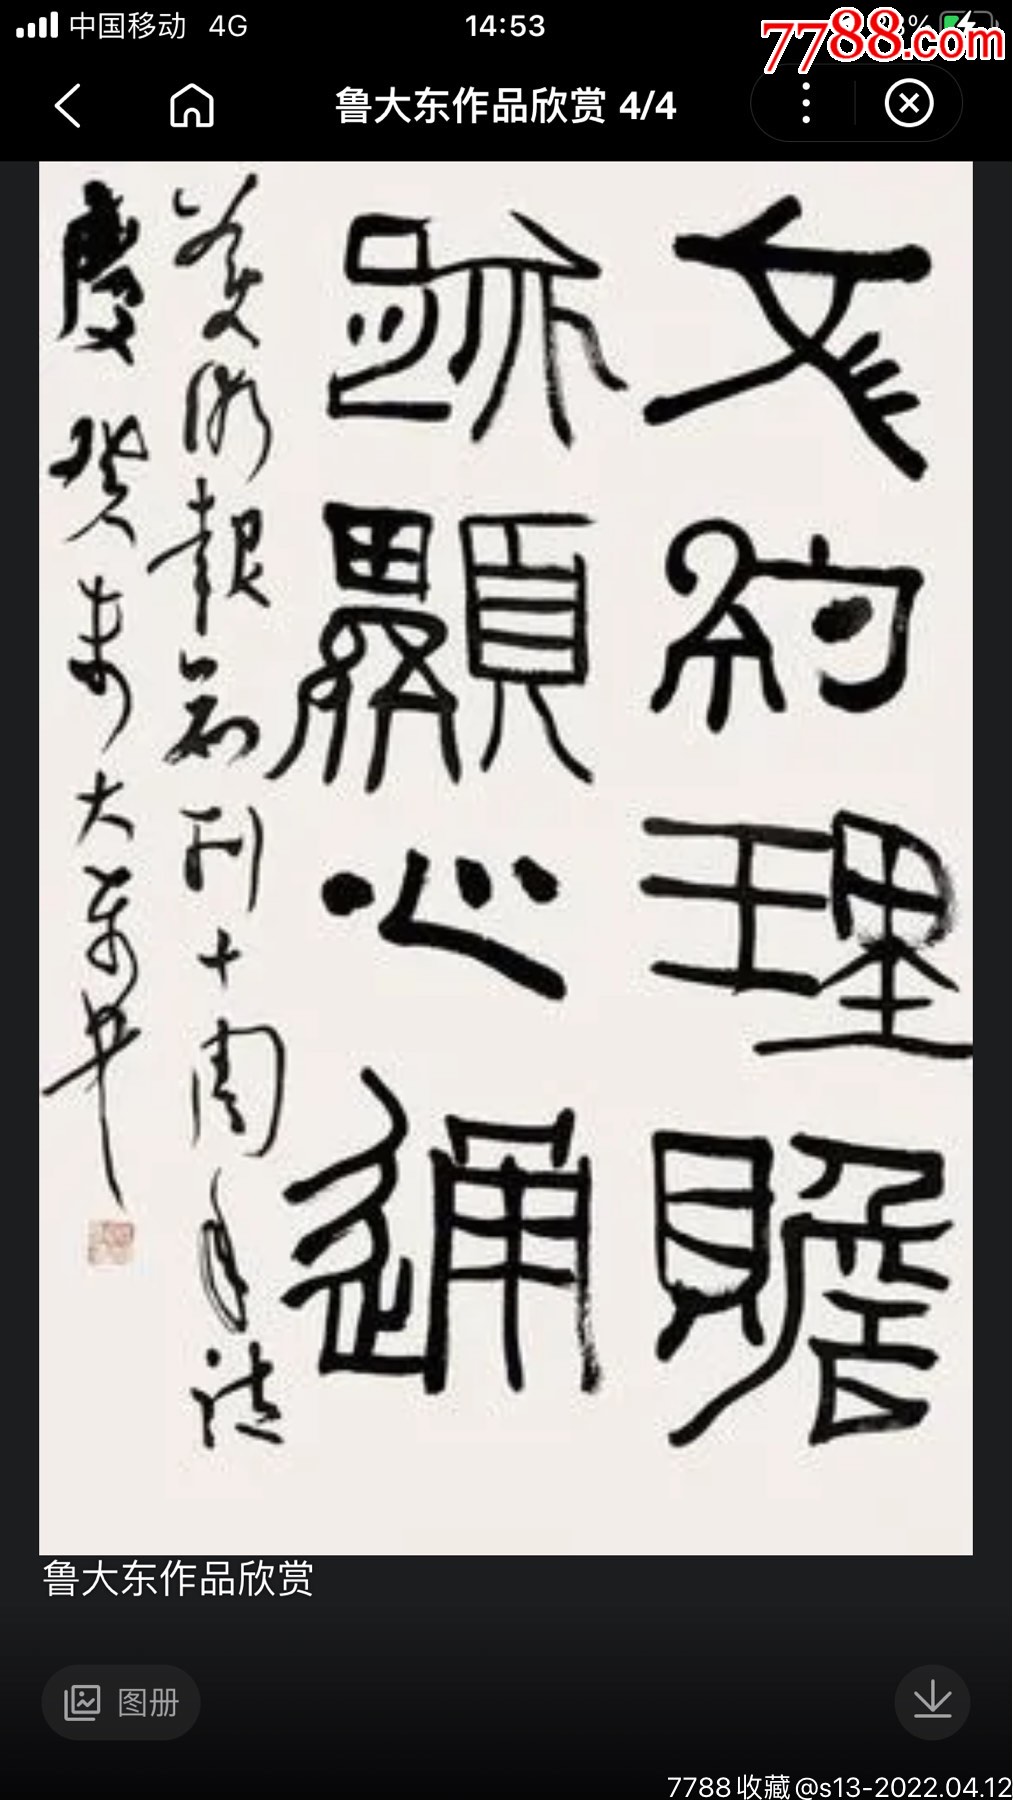 中国移动 4G 14:53
7788.com
鲁大东作品欣赏 4/4
文約理贍
跡顯心通
美術報創刊十周年誌
慶 癸未大東書
鲁大东作品欣赏
图册
7788收藏@s13-2022.04.12